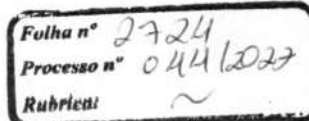 Folha nº 2724
Processo nº 044/2027
Rubrica: